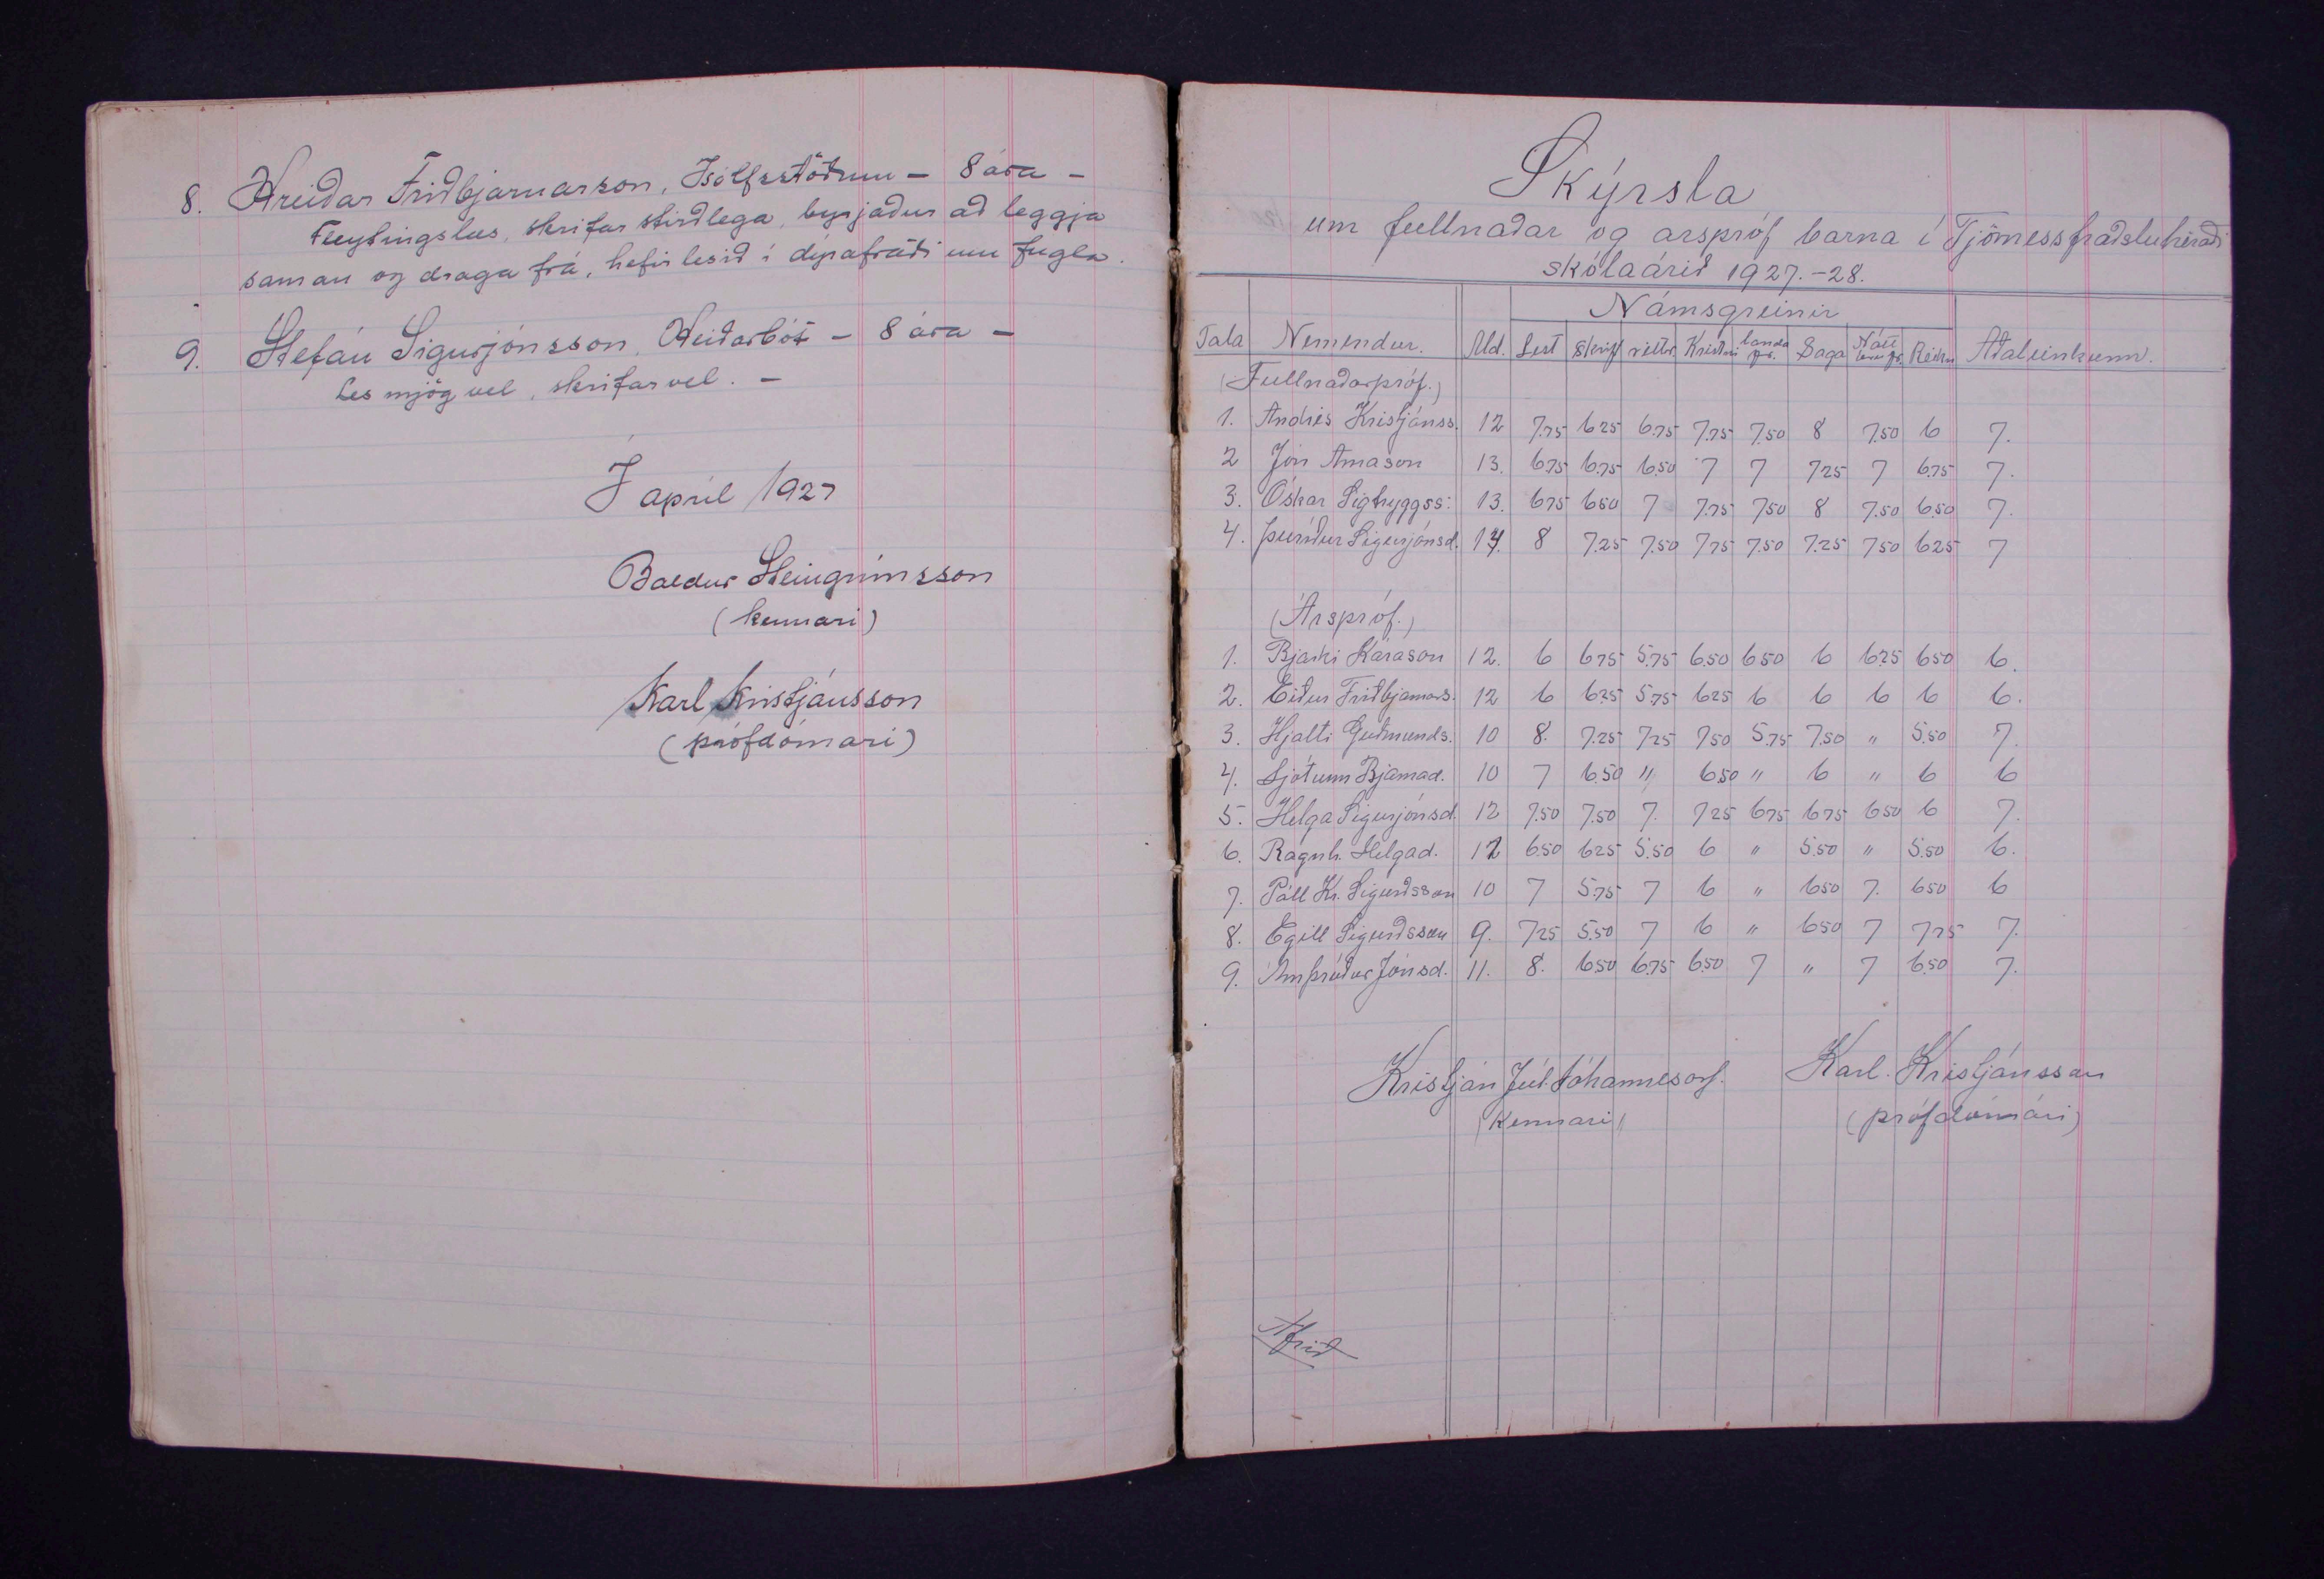 8. Hreiðar Friðbjarnarson, Ísólfsstöðum – 8 ára –
Fleytingslæs, skrifar stirðlega, byrjaður að leggja
saman og draga frá, hefir lesið í dýrafræði um fugla.
9. Stefán Sigurjónsson, Heiðarbót – 8 ára –
Les mjög vel, skrifar vel. –
Í apríl 1927
Baldur Steingrímsson
(kennari)
Karl Kristjánsson
(prófdómari)
Skýrsla
um fullnaðar og árspróf barna í Tjörnessfræðsluhéraði
skólaárið 1927.-28.
Námsgreinir
Tala Nemendur. Ald. Lest Skrift réttr. Kristni landa fr. Saga Nátt úrufr. Reikn Aðaleinkunn.
(Fullnaðarpróf.)
1. Andrés Kristjánss. 12 7.75 6.25 6.75 7.75 7.50 8 7.50 6 7.
2 Jón Árnason 13. 6.75 6.75 6.50 7 7 7.25 7 6.75 7.
3. Óskar Sigtryggss: 13. 6.75 6.50 7 7.75 7.50 8 7.50 6.50 7.
4. Þuríður Sigurjónsd. 14. 8 7.25 7.50 7.75 7.50 7.25 7.50 6.25 7
(Árspróf.)
1. Bjarki Kárason 12. 6 6.75 5.75 6.50 6.50 6 6.25 6.50 6.
2. Eiður Friðbjarnars. 12 6 6.25 5.75 6.25 6 6 6 6 6.
3. Hjalti Guðmunds. 10 8. 7.25 7.25 7.50 5.75 7.50 " 5.50 7.
4. Ljótunn Bjarnad. 10 7 6.50 " 6.50 " 6 " 6 6
5. Helga Sigurjónsd. 12 7.50 7.50 7. 7.25 6.75 6.75 6.50 6 7.
6. Ragnh. Helgad. 12 6.50 6.25 5.50 6 " 5.50 " 5.50 6.
7. Páll Kr. Sigurðsson 10 7 5.75 7 6 " 6.50 7. 6.50 6
8. Egill Sigurðsson 9. 7.25 5.50 7 6 " 6.50 7 7.25 7.
9. Arnþrúður Jónsd. 11. 8. 6.50 6.75 6.50 7 " 7 6.50 7.
Kristján Júl. Jóhannesson. Karl. Kristjánsson
(Kennari) (prófdómari)